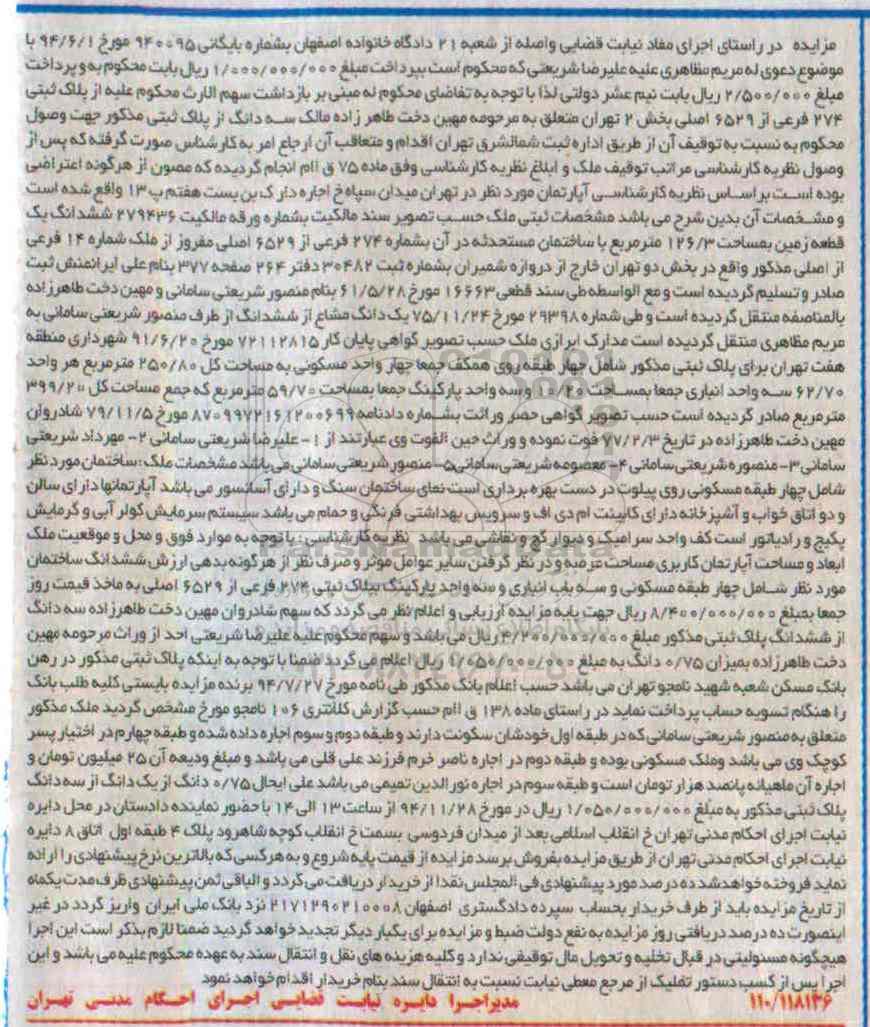 مزایده در راستای اجرای مفاد نیابت قضایی واصله از شعبه ۲۱ دادگاه خانواده اصفهان بشماره بایگانی ۹۴۰۰۹۵ مورخ ۹۴/۶/۱ با
موضوع دعوی له مریم مظاهری علیه علیرضا شریعتی که محکوم است بپرداخت مبلغ ۱/۰۰۰/۰۰۰/۰۰۰ ریال بابت محکوم به و پرداخت
مبلغ ۲/۵۰۰/۰۰۰ ریال بابت نیم عشر دولتی لذا با توجه به تقاضای محکوم له مبنی بر بازداشت سهم الارث محکوم علیه از پلاک ثبتی
۲۷۴ فرعی از ۶۵۲۹ اصلی بخش ۲ تهران متعلق به مرحومه مهین دخت طاهر زاده مالک سه دانگ از پلاک ثبتی مذکور جهت وصول
محکوم به نسبت به توقیف آن از طریق اداره ثبت شمالشرق تهران اقدام و متعاقب آن ارجاع امر به کارشناس صورت گرفته که پس از
وصول نظریه کارشناسی مراتب توقیف ملک و ابلاغ نظریه کارشناسی وفق ماده ۷۵ ق اام انجام گردیده که مصون از هرگونه اعتراضی
بوده است براساس نظریه کارشناسی آپارتمان مورد نظر در تهران میدان سپاه خ اجاره دار ک بن بست هفتم پ ۱۳ واقع شده است
و مشخصات آن بدین شرح می باشد مشخصات ثبتی ملک حسب تصویر سند مالکیت بشماره ورقه مالکیت ۲۷۹۴۳۶ ششدانگ یک
قطعه زمین بمساحت ۱۲۶/۳ مترمربع با ساختمان مستحدثه در آن بشماره ۲۷۴ فرعی از ۶۵۲۹ اصلی مفروز از ملک شماره ۱۴ فرعی
از اصلی مذکور واقع در بخش دو تهران خارج از دروازه شمیران بشماره ثبت ۳۰۴۸۲ دفتر ۲۶۴ صفحه ۳۷۷ بنام علی ایرانمنش ثبت
صادر و تسلیم گردیده است و مع الواسطه طی سند قطعی ۱۶۶۶۳ مورخ ۶۱/۵/۲۸ بنام منصور شریعتی سامانی و مهین دخت طاهرزاده
بالمناصفه منتقل گردیده است و طی شماره ۲۹۳۹۸ مورخ ۷۵/۱۱/۲۴ یک دانگ مشاع از ششدانگ از طرف منصور شریعتی سامانی به
مریم مظاهری منتقل گردیده است مدارک ابرازی ملک حسب تصویر گواهی پایان کار ۷۲۱۱۲۸۱۵ مورخ ۹۱/۶/۲۰ شهرداری منطقه
هفت تهران برای پلاک ثبتی مذکور شامل چهار طبقه روی همکف جمعا چهار واحد مسکونی به مساحت کل ۲۵۰/۸۰ مترمربع هر واحد
۶۲/۷۰ سه واحد انباری جمعا بمساحت ۱۰/۲۰ و سه واحد پارکینگ جمعا بمساحت ۵۹/۷۰ مترمربع که جمع مساحت کل ۳۹۹/۲۰
مترمربع صادر گردیده است حسب تصویر گواهی حصر وراثت بشماره دادنامه ۸۷۰۹۹۷۲۱۶۱۲۰۰۶۹۹ مورخ ۷۹/۱۱/۵ شادروان
مهین دخت طاهرزاده در تاریخ ۷۷/۲/۳ فوت نموده و وراث حین الفوت وی عبارتند از ۱- علیرضا شریعتی سامانی ۲- مهرداد شریعتی
سامانی ۳- منصوره شریعتی سامانی ۴- معصومه شریعتی سامانی ۵- منصور شریعتی سامانی می باشد مشخصات ملک: ساختمان مورد نظر
شامل چهار طبقه مسکونی روی پیلوت در دست بهره برداری است نمای ساختمان سنگ و دارای آسانسور می باشد آپارتمانها دارای سالن
و دو اتاق خواب و آشپزخانه دارای کابینت ام دی اف و سرویس بهداشتی فرنگی و حمام می باشد سیستم سرمایش کولر آبی و گرمایش
پکیج و رادیاتور است کف واحد سرامیک و دیوار گچ و نقاشی می باشد نظریه کارشناسی: با توجه به موارد فوق و محل و موقعیت ملک
ابعاد و مساحت آپارتمان کاربری مساحت عرصه و در نظر گرفتن سایر عوامل موثر و صرف نظر از هرگونه بدهی ارزش ششدانگ ساختمان
مورد نظر شامل چهار طبقه مسکونی و سه باب انباری و سه واحد پارکینگ بپلاک ثبتی ۲۷۴ فرعی از ۶۵۲۹ اصلی به ماخذ قیمت روز
جمعا بمبلغ ۸/۴۰۰/۰۰۰/۰۰۰ ریال جهت پایه مزایده ارزیابی و اعلام نظر می گردد که سهم شادروان مهین دخت طاهرزاده سه دانگ
از ششدانگ پلاک ثبتی مذکور مبلغ ۴/۲۰۰/۰۰۰/۰۰۰ ریال می باشد و سهم محکوم علیه علیرضا شریعتی احد از وراث مرحومه مهین
دخت طاهرزاده بمیزان ۰/۷۵ دانگ به مبلغ ۱/۰۵۰/۰۰۰/۰۰۰ ریال اعلام می گردد ضمنا با توجه به اینکه پلاک ثبتی مذکور در رهن
بانک مسکن شعبه شهید نامجو تهران می باشد حسب اعلام بانک مذکور طی نامه مورخ ۹۴/۷/۲۷ برنده مزایده بایستی کلیه طلب بانک
را هنگام تسویه حساب پرداخت نماید در راستای ماده ۱۳۸ ق اام حسب گزارش کلانتری ۱۰۶ نامجو مورخ مشخص گردید ملک مذکور
متعلق به منصور شریعتی سامانی که در طبقه اول خودشان سکونت دارند و طبقه دوم و سوم اجاره داده شده و طبقه چهارم در اختیار پسر
کوچک وی می باشد وملک مسکونی بوده و طبقه دوم در اجاره ناصر خرم فرزند علی قلی می باشد و مبلغ ودیعه آن ۲۵ میلیون تومان و
اجاره آن ماهیانه پانصد هزار تومان است و طبقه سوم در اجاره نورالدین تمیمی می باشد علی ایحال ۰/۷۵ دانگ از یک دانگ از سه دانگ
پلاک ثبتی مذکور به مبلغ ۱/۰۵۰/۰۰۰/۰۰۰ ریال در مورخ ۹۴/۱۱/۲۸ از ساعت ۱۳ الی ۱۴ با حضور نماینده دادستان در محل دایره
نیابت اجرای احکام مدنی تهران خ انقلاب اسلامی بعد از میدان فردوسی بسمت خ انقلاب کوچه شاهرود پلاک ۴ طبقه اول اتاق ۸ دایره
نیابت اجرای احکام مدنی تهران از طریق مزایده بفروش برسد مزایده از قیمت پایه شروع و به هرکسی که بالاترین نرخ پیشنهادی را ارائه
نماید فروخته خواهد شد ده درصد مورد پیشنهادی فی المجلس نقدا از خریدار دریافت می گردد و الباقی ثمن پیشنهادی ظرف مدت یکماه
از تاریخ مزایده باید از طرف خریدار بحساب سپرده دادگستری اصفهان ۲۱۷۱۲۹۰۲۱۰۰۰۸ نزد بانک ملی ایران واریز گردد در غیر
اینصورت ده درصد دریافتی روز مزایده به نفع دولت ضبط و مزایده برای یکبار دیگر تجدید خواهد گردید ضمنا لازم بذکر است این اجرا
هیچگونه مسئولیتی در قبال تخلیه و تحویل مال توقیفی ندارد و کلیه هزینه های نقل و انتقال سند به عهده محکوم علیه می باشد و این
اجرا پس از کسب دستور تملیک از مرجع معطی نیابت نسبت به انتقال سند بنام خریدار اقدام خواهد نمود
۱۱۰/۱۱۸۱۳۶ مدیر اجرا دایره نیابت قضایی اجرای احکام مدنی تهران